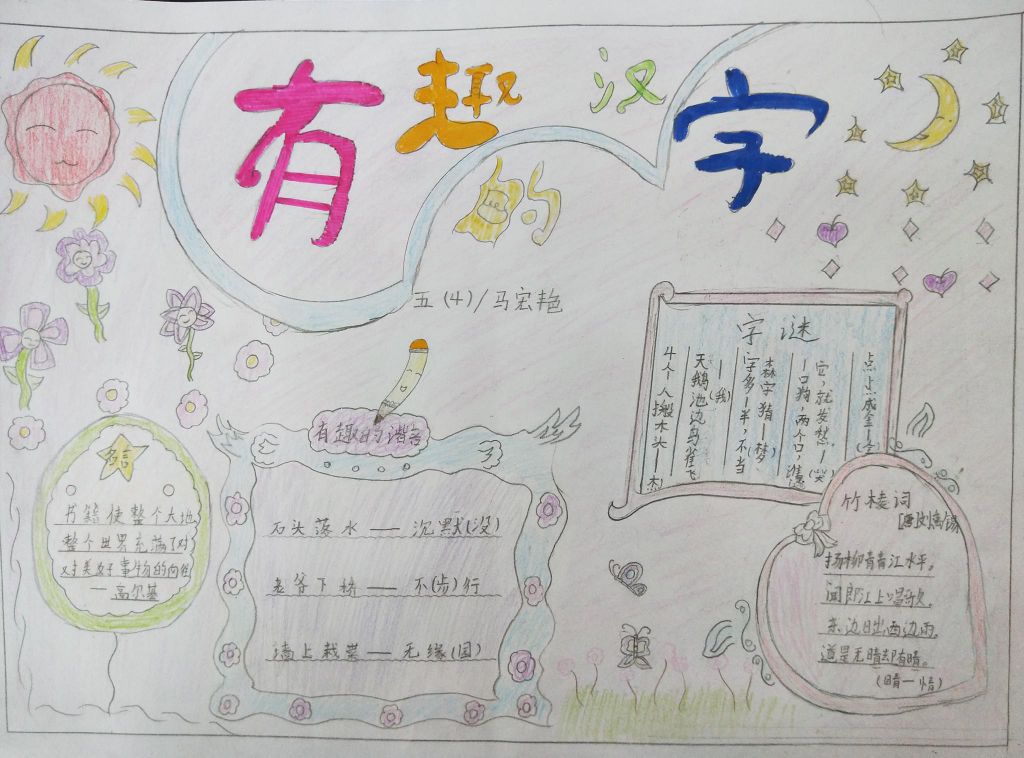 有趣的汉字
五(4)/马宏艳
字谜
4个人搬木头—杰
天鹅池边鸟雀飞
—(我)
字多一半,不当
森字猜—梦
一口狗,两个口,谁
它,就发愁—(哭)
点上点成金—全
有趣的谐音
石头落水——沉默(没)
老爷下轿——不(步)行
墙上栽菜——无缘(园)
名言
书籍使整个大地,
整个世界充满了对
对美好事物的向往
—高尔基
竹楼词
[唐]刘禹锡
扬柳青青江水平。
闻郎江上唱歌,
东边日出西边雨,
道是无晴却有晴。
(晴—情)